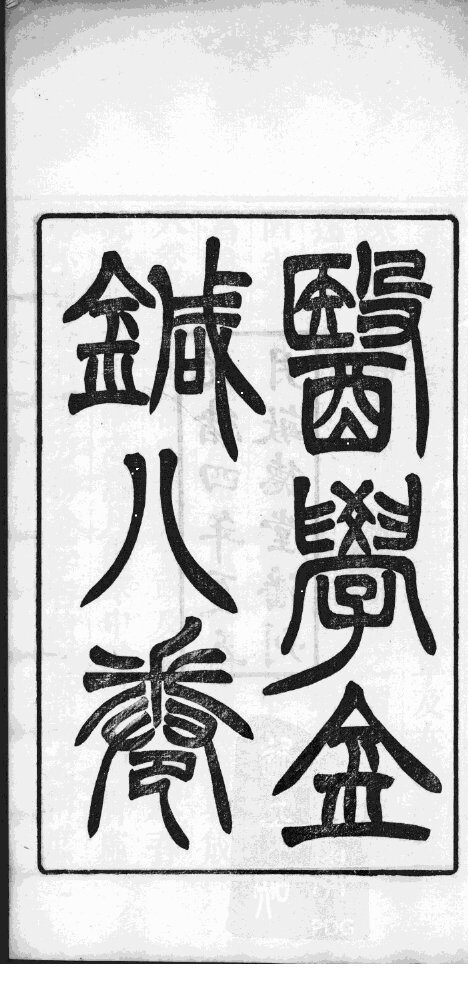 醫學金
鍼八卷
PDG